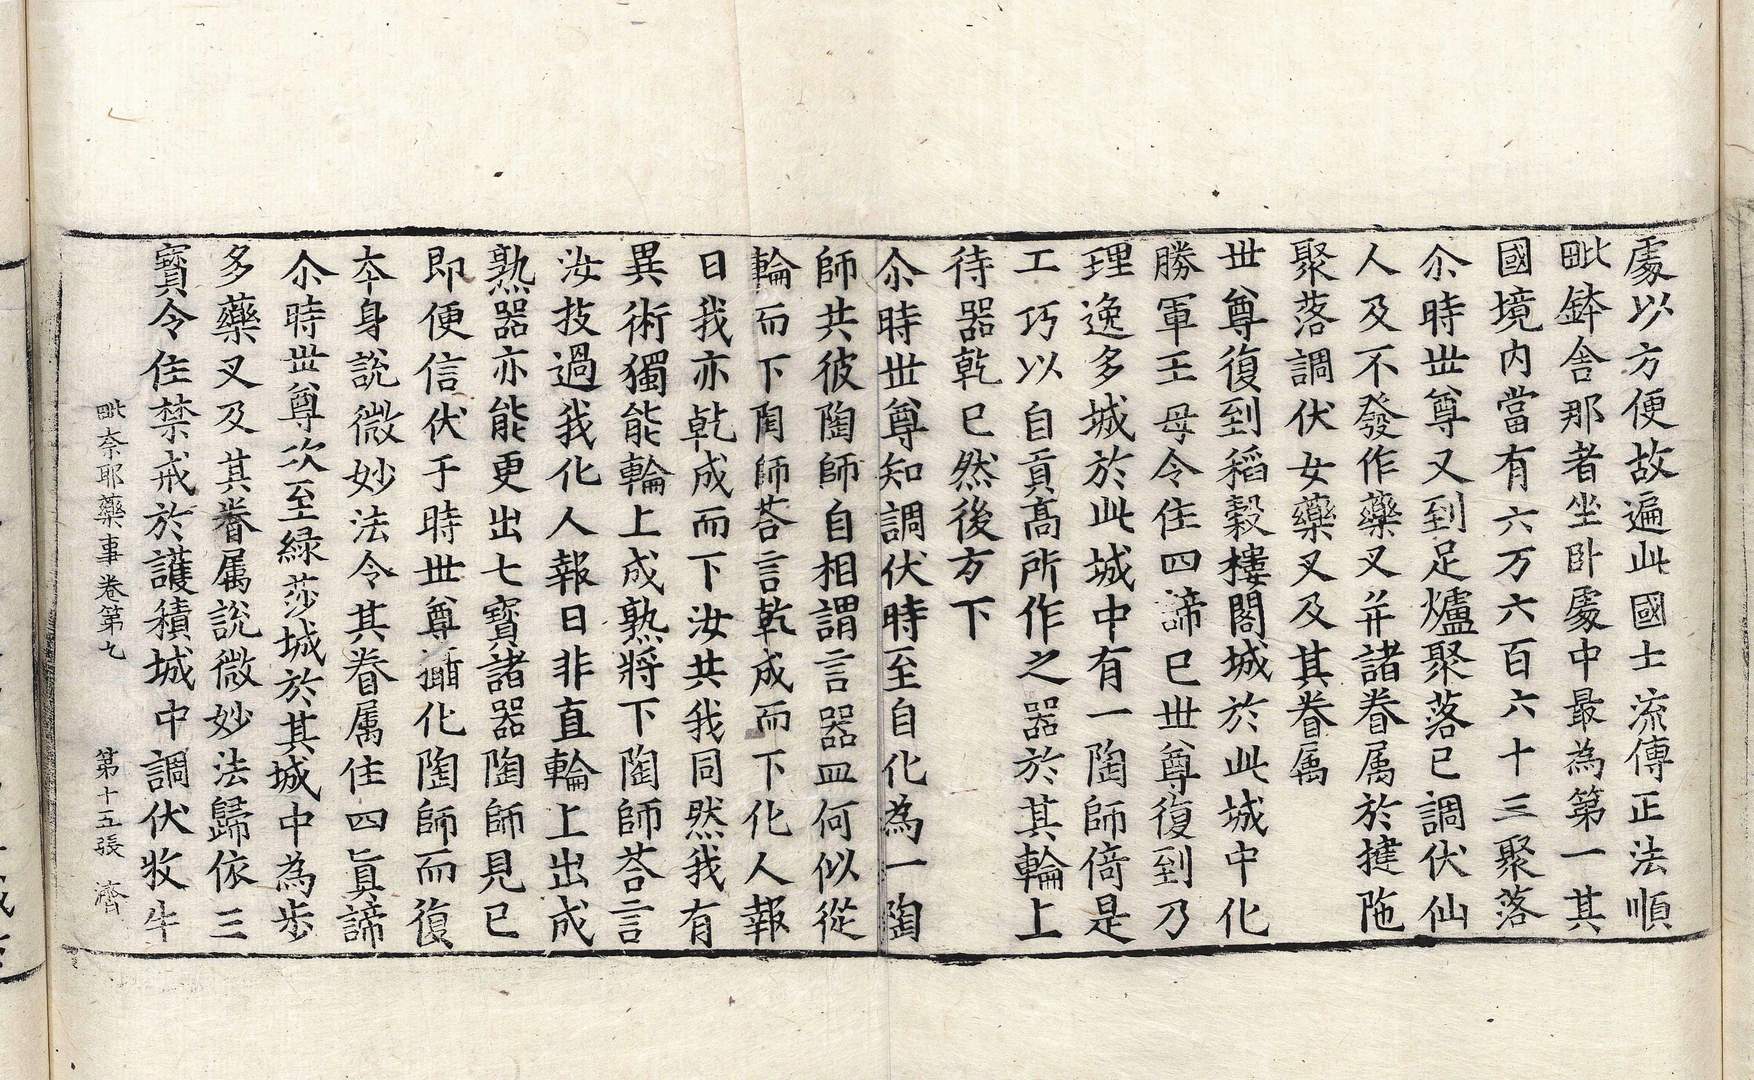 處以方便故遍此國土流傳正法順
毗鉢舍那者坐卧處中最為第一其
國境内當有六万六百六十三聚落
尒時世尊又到足爐聚落已調伏仙
人及不發作藥叉并諸眷属於揵陁
聚落調伏女藥叉及其眷属
世尊復到稻穀樓閣城於此城中化
勝軍王母令住四諦已世尊復到乃
理逸多城於此城中有一陶師倚是
工巧以自貢高所作之器於其輪上
待器乾已然後方下
尒時世尊知調伏時至自化為一陶
師共彼陶師自相謂言器皿何似從
輪而下陶師荅言乾成而下化人報
曰我亦乾成而下汝共我同然我有
異術獨能輪上成熟將下陶師荅言
汝技過我化人報曰非直輪上出成
熟器亦能更出七寳諸器陶師見已
即便信伏于時世尊攝化陶師而復
本身說微妙法令其眷属住四真諦
尒時世尊次至緑莎城於其城中為步
多藥叉及其眷属說微妙法歸依三
寳令住禁戒於護積城中調伏牧牛
毗奈耶藥事卷第九 第十五張 濟